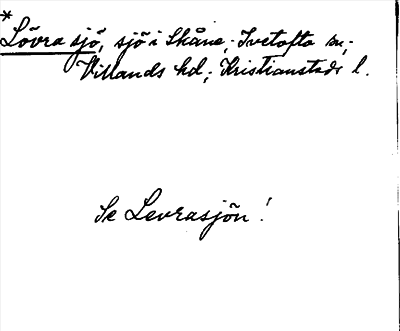 *
Lövra sjö, sjö i Skåne; Ivetofta sn;
Villands hd; Kristianstads l.
Se Levrasjön!